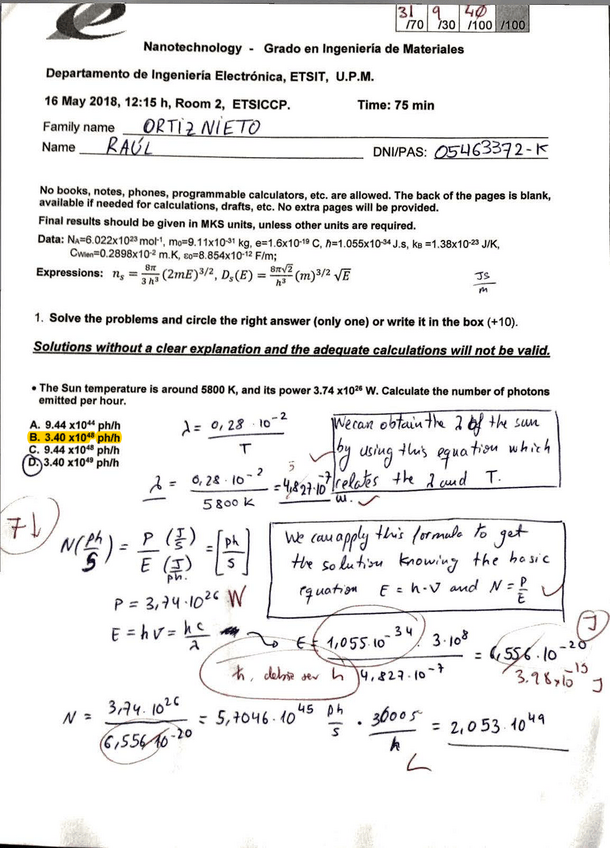 31 9 40
/70 /30 /100 /100
Nanotechnology - Grado en Ingeniería de Materiales
Departamento de Ingeniería Electrónica, ETSIT, U.P.M.
16 May 2018, 12:15 h, Room 2, ETSICCP. Time: 75 min
Family name ORTIZ NIETO
Name RAÚL DNI/PAS: 05463372-K
No books, notes, phones, programmable calculators, etc. are allowed. The back of the pages is blank,
available if needed for calculations, drafts, etc. No extra pages will be provided.
Final results should be given in MKS units, unless other units are required.
Data: NA=6.022x10²³ mol⁻¹, m₀=9.11x10⁻³¹ kg, e=1.6x10⁻¹⁹ C, ℏ=1.055x10⁻³⁴ J.s, kB =1.38x10⁻²³ J/K,
CWien=0.2898x10⁻² m.K, ε₀=8.854x10⁻¹² F/m;
Expressions: nₛ = 8π/3h³ (2mE)^3/2, Dₛ(E) = 8π√2/h³ (m)^3/2 √E
JS/m
1. Solve the problems and circle the right answer (only one) or write it in the box (+10).
Solutions without a clear explanation and the adequate calculations will not be valid.
• The Sun temperature is around 5800 K, and its power 3.74 x10²⁶ W. Calculate the number of photons
emitted per hour.
A. 9.44 x10⁴⁴ ph/h
B. 3.40 x10⁴⁸ ph/h
C. 9.44 x10⁴⁸ ph/h
D. 3.40 x10⁴⁹ ph/h
λ = 0,28 · 10⁻² / T
We can obtain the λ of the sun
by using this equation which
relates the λ and T.
λ = 0,28 · 10⁻² / 5800 K = 4,827·10⁻⁷ m.
7↓
N(ph/s) = P (J/s) / E (J/ph.) = [ph/s]
We can apply this formula to get
the solution knowing the basic
equation E = h·ν and N = P/E
P = 3,74·10²⁶ W
E = hν = hc/λ → E = 1,055·10⁻³⁴ · 3·10⁸ / 4,827·10⁻⁷ = 6,556·10⁻²⁰ J
ℏ, debe ser h
3.98x10⁻¹⁹ J
N = 3,74·10²⁶ / 6,556·10⁻²⁰ = 5,7046·10⁴⁵ ph/s · 3600 s/h = 2,053·10⁴⁹